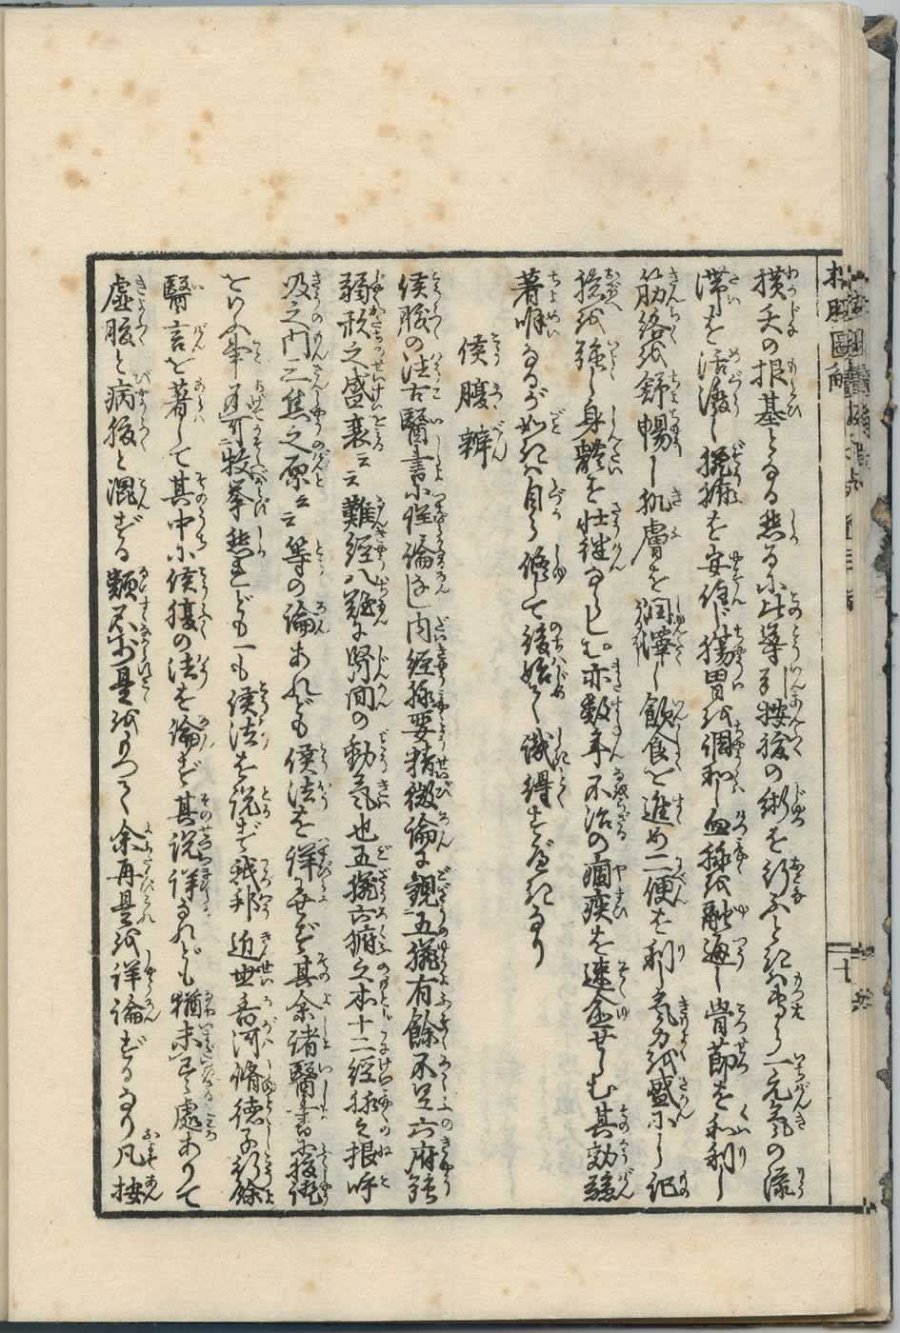 按腹圖解
横夭の根基となる然るに此等に按腹の術を行ふときは専ら一元氣の流
滞を活潑し臓腑を安佳じ腸胃を調和し血脉を融通し骨節を和利し
筋絡を舒暢し肌膚を潤澤し飲食を進め二便を利し氣力を盛にし
強し身體を壮健ならしむ亦数年不治の痼疾を速全せしむ其効驗
著明なるが如きは自ら脩して後始て識得すべきなり
候腹辨
候腹の法古醫書に論し内経脉要精微論に観五臓有餘不足六府強
弱形之盛衰云云難経八難に腎間の動氣也五臓六腑之本十二経脉之根呼
吸之門三焦之原云云等の論あれども候法を詳にせず其余諸醫書に腹
といふ事 枚挙然ども一も候法を説ず我邦近世香河脩徳子行餘
醫言を著して其中に候腹の法を論ず其説詳なれども猶未し處ありて
虚腹と病腹と混ずる類不少是をもつて余再是を詳論ずるなり凡按
十